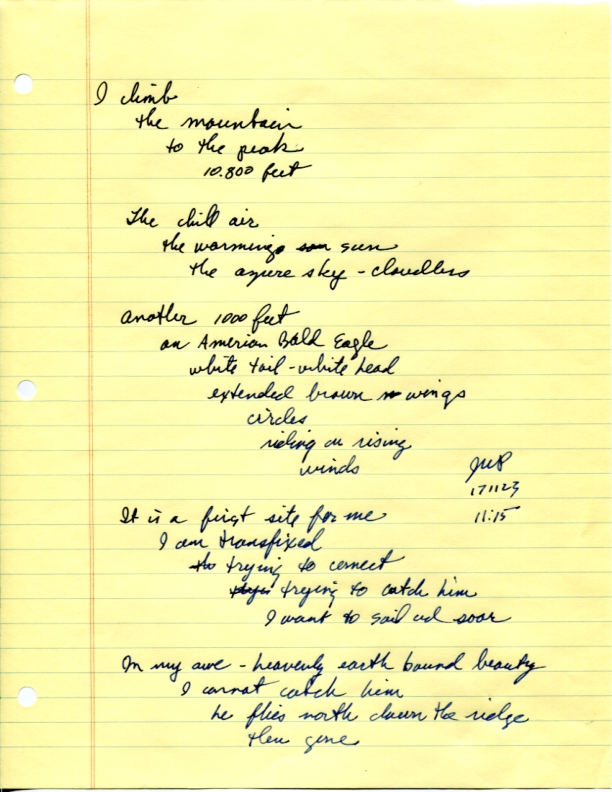 I climb
the mountain
to the peak
10.800 feet
The chill air
the warming sun
the azure sky - cloudless
another 1000 feet
an Amerian Bald Eagle
white tail - white head
extended brown wings
circles
riding on rising
winds
JWP
171123
11:15
It is a first site for me
I am transfixed
trying to connect
trying to catch him
I want to sail ad soar
In my awe - heavenly earth bound beauty
I cannot catch him
he flies north down the ridge
then gone